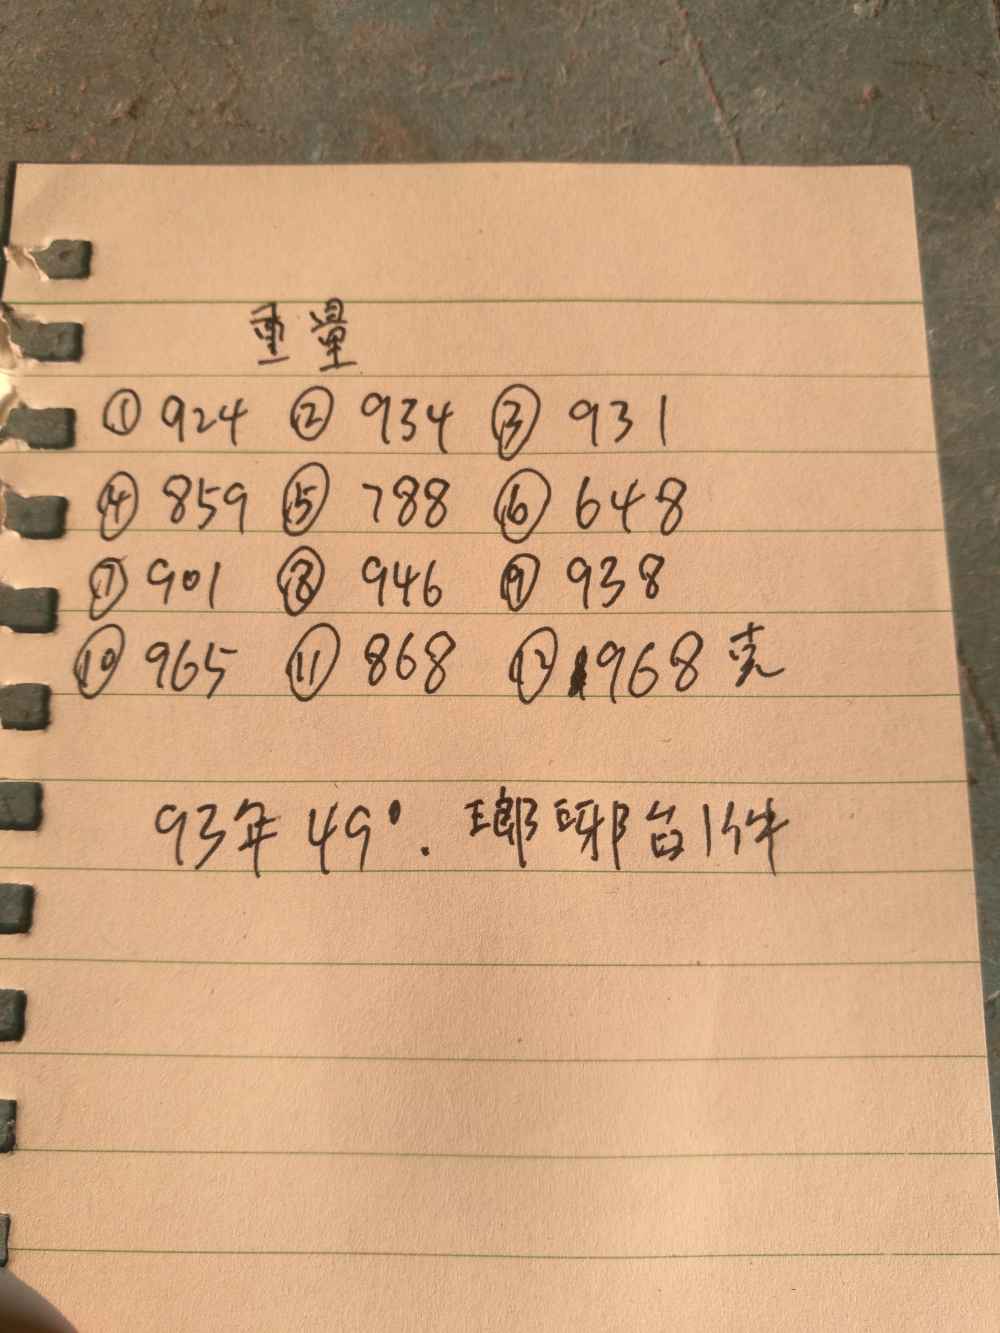 重量
① 924 ② 934 ③ 931
④ 859 ⑤ 788 ⑥ 648
⑦ 901 ⑧ 946 ⑨ 938
⑩ 965 ⑪ 868 ⑫ 968 克
93年 49°. 瑯琊台1件